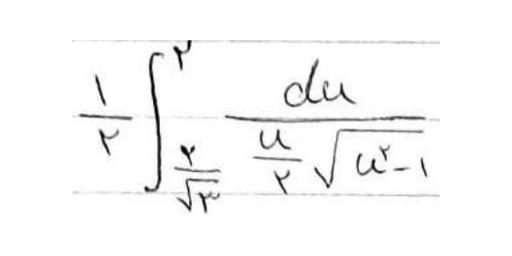 \frac{۱}{۲} \int_{\frac{۲}{\sqrt{۳}}}^{۲} \frac{du}{\frac{u}{۲} \sqrt{u^{۲}-۱}}